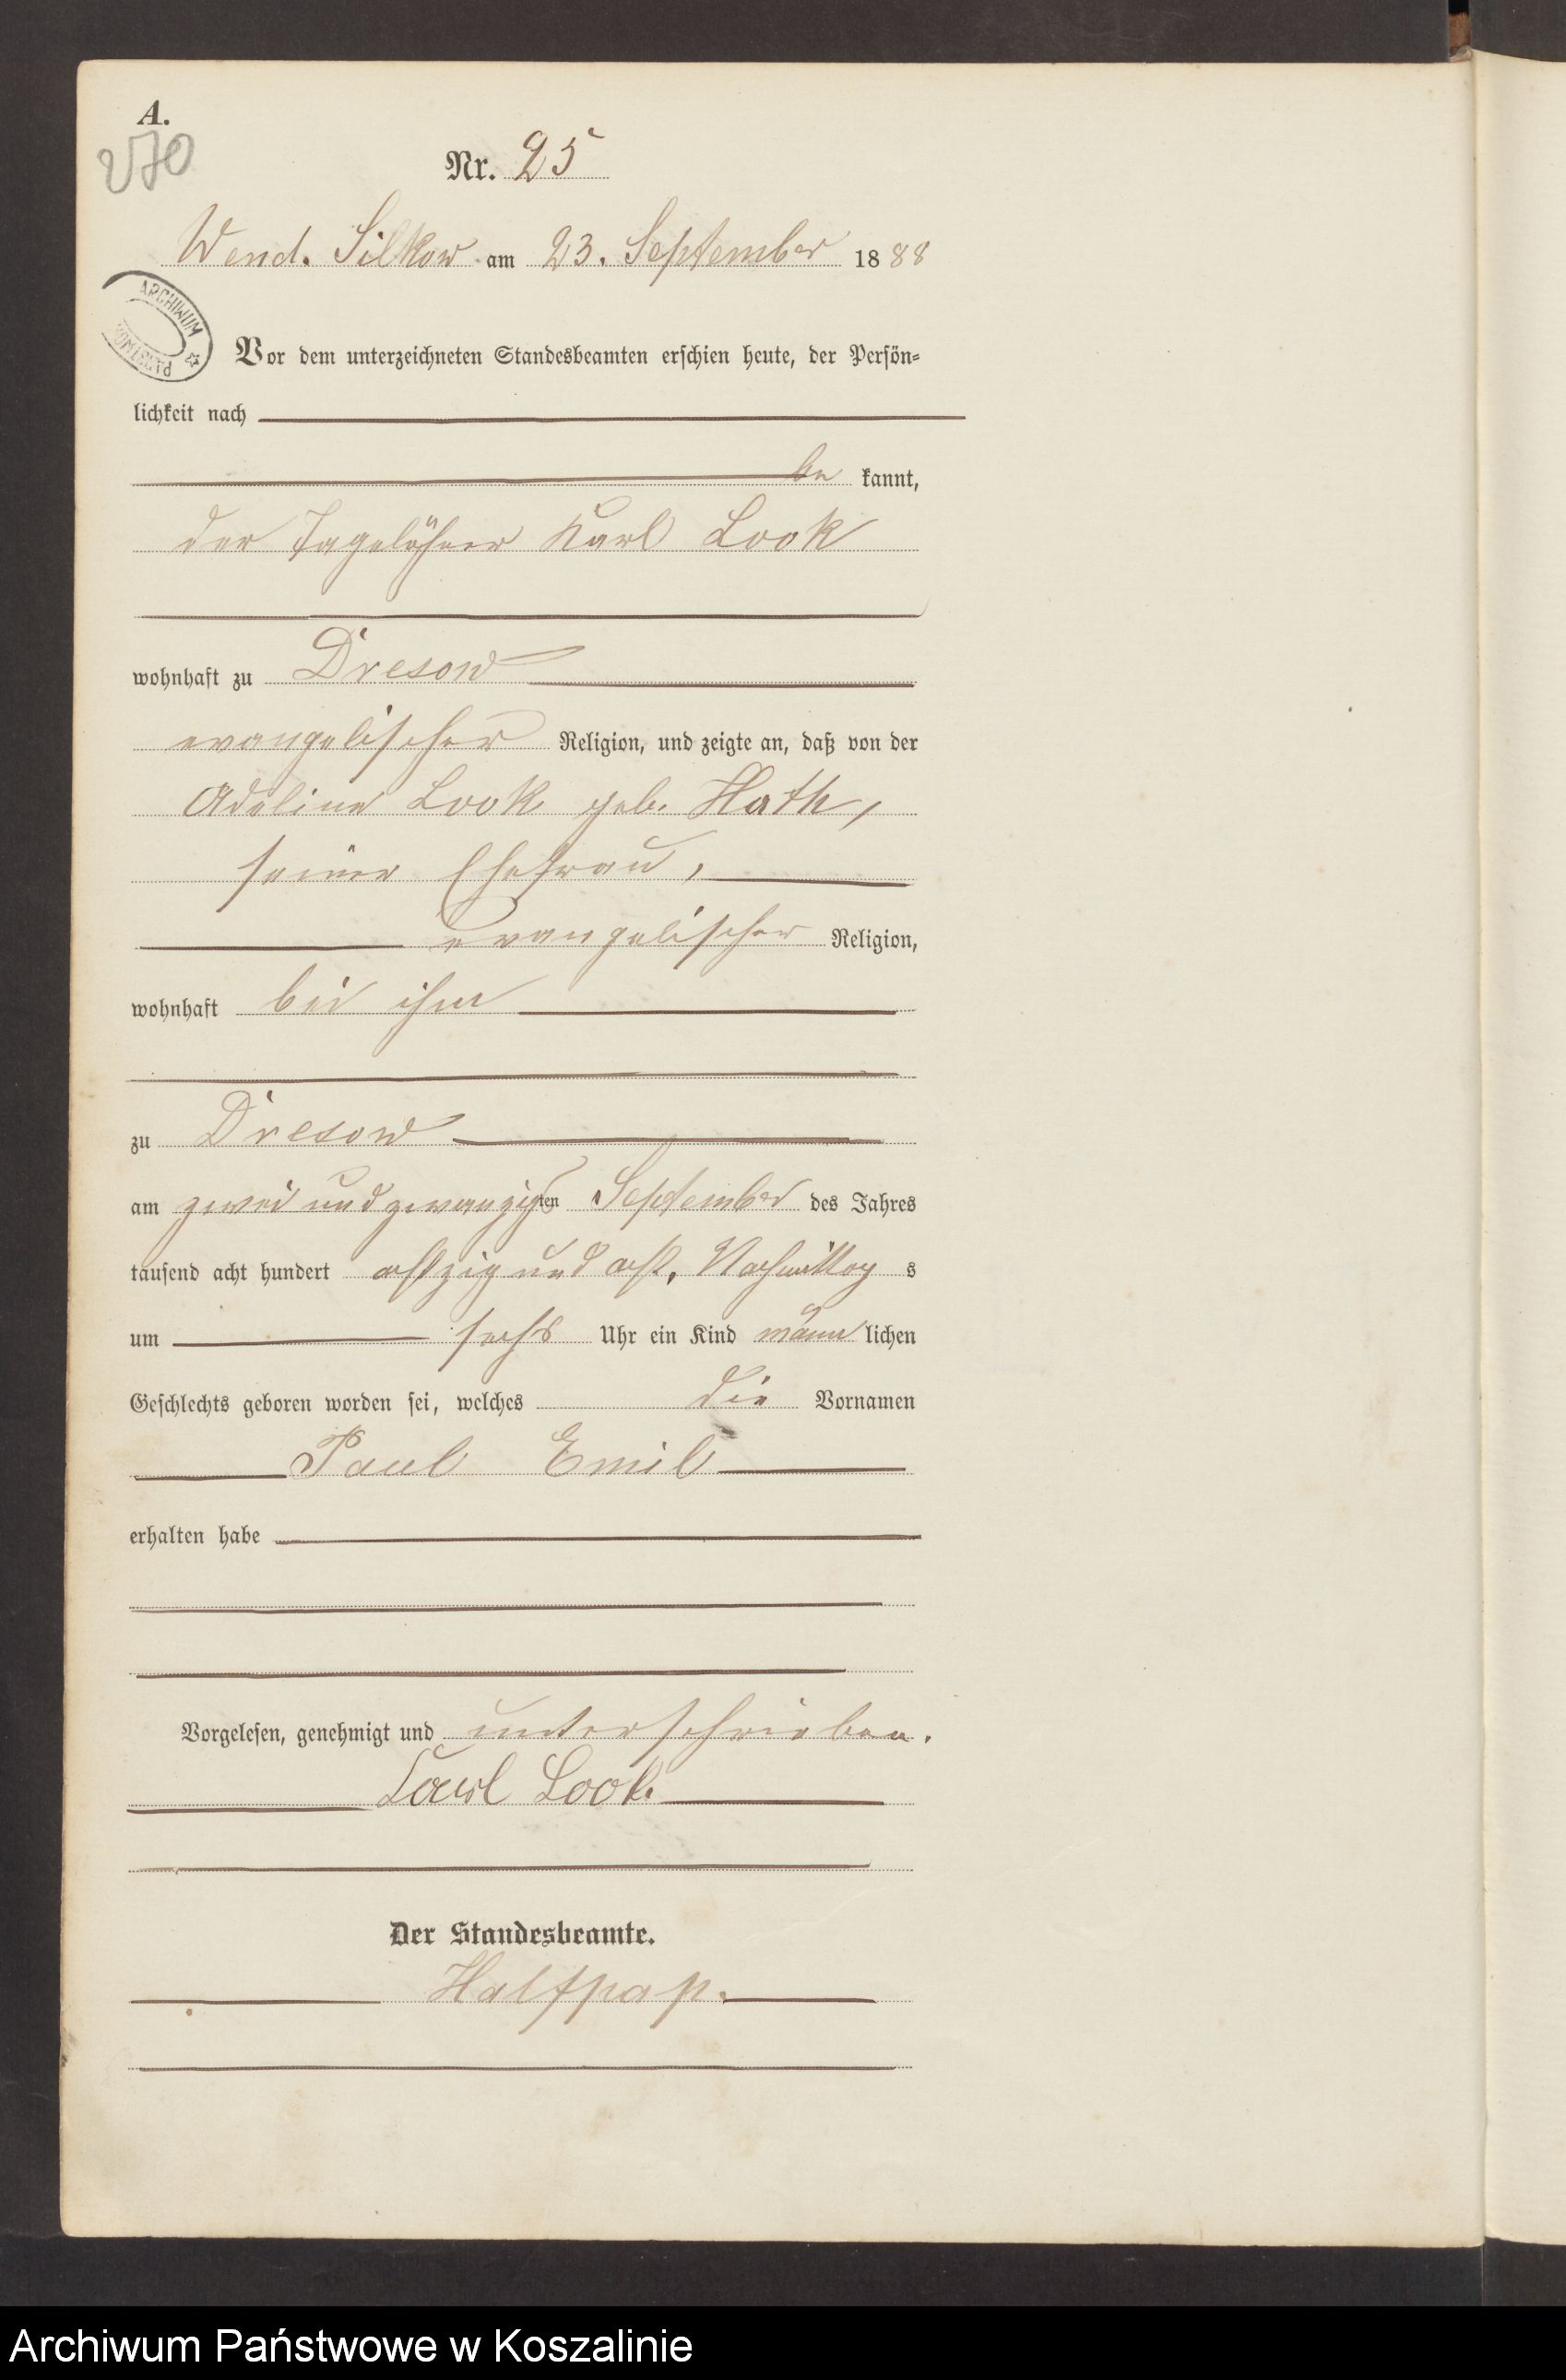 A.
270
Nr. 25
Wend. Silkow am 23. September 1888
ARCHIWUM
PAŃSTWOW
Vor dem unterzeichneten Standesbeamten erschien heute, der Persön=
lichkeit nach
be kannt,
der Tagelöhner Karl Look
wohnhaft zu Dresow
evangelischer Religion, und zeigte an, daß von der
Adeline Look geb. Hath,
seiner Ehefrau,
evangelischer Religion,
wohnhaft bei ihm
zu Dresow
am zwei und zwanzigsten September des Jahres
tausend acht hundert achtzig und acht, Nachmittag s
um sechs Uhr ein Kind männ lichen
Geschlechts geboren worden sei, welches die Vornamen
Paul Emil
erhalten habe
Vorgelesen, genehmigt und unterschrieben.
Karl Look
Der Standesbeamte.
Halfpap.
Archiwum Państwowe w Koszalinie